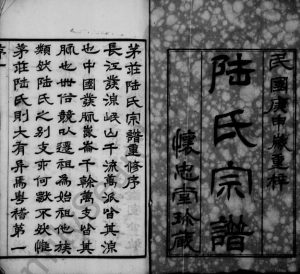 民國庚申歲重梓
陸氏宗譜
懷忠堂珍藏
茅莊陸氏宗譜重修序
長江發源岷山千流萬派皆其源
也中國發脈崑崙千榦萬支皆其
脈也世俗競以遷祖為始祖他族
類然陸氏之別支亦何獨不然惟
茅莊陸氏則大有異焉考稽第一
序一